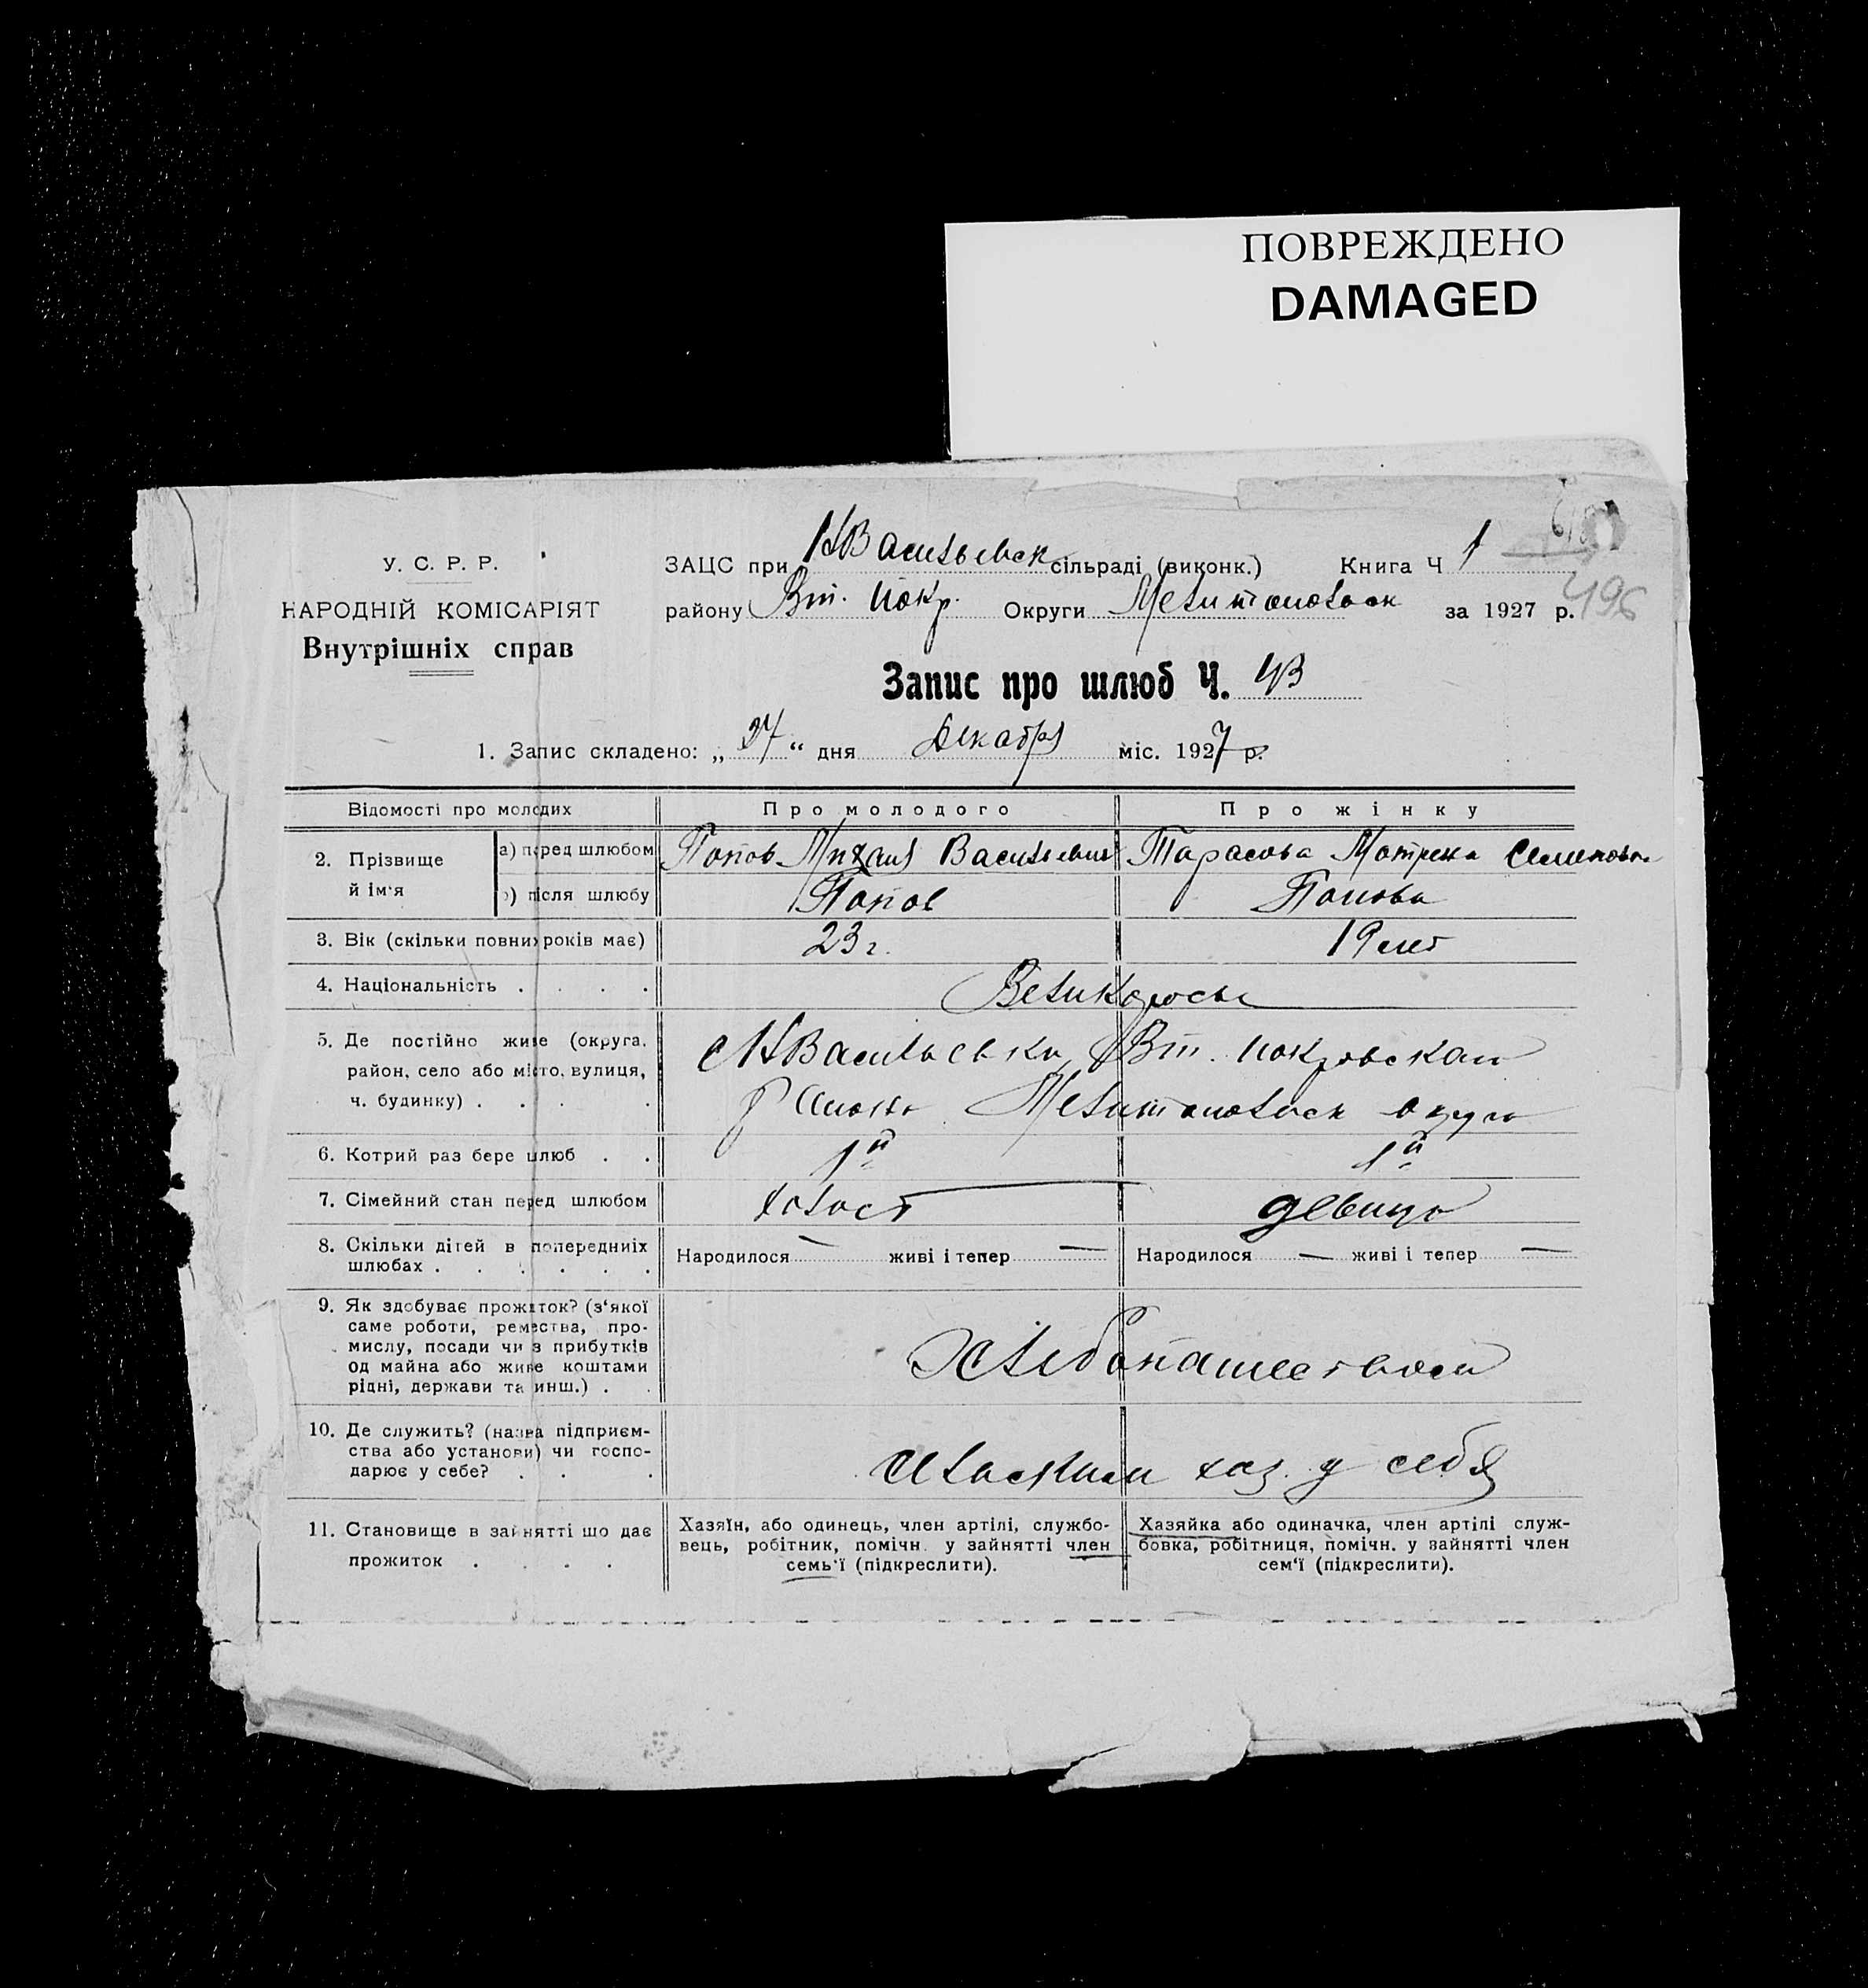 ПОВРЕЖДЕНО
DAMAGED
У. С. Р. Р.
НАРОДНІЙ КОМІСАРІЯТ
Внутрішніх справ
ЗАЦС при НВасильевск сільраді (виконк.) Книга Ч 1
району Вт. Покр. Округи Мелитопольск за 1927 р.
496
Запис про шлюб Ч. 43
1. Запис складено: „27“ дня Декабря міс. 1927 р.
Відомості про молодих Про молодого Про жінку
2. Прізвище й ім‘я
а) перед шлюбом Попов Михаил Васильевич Тарасова Матрена Семеновна
б) після шлюбу Попов Попова
3. Вік (скільки повних років має) 23 г. 19 лет
4. Національність . . . . Великороссы
5. Де постійно живе (округа, район, село або місто, вулиця, ч. будинку) . . . .
с НВасильевки, Вт. Покровскаго
Района Мелитопольск округа
6. Котрий раз бере шлюб . . 1й 1й
7. Сімейний стан перед шлюбом холост девица
8. Скільки дітей в попередниіх шлюбах . . . . . .
Народилося — живі і тепер — Народилося — живі і тепер —
9. Як здобуває прожиток? (з‘якої
саме роботи, ремества, про-
мислу, посади чи з прибутків
од майна або живе коштами
рідні, держави та инш.) . .
Хлебопашеством
10. Де служить? (назва підприєм-
ства або установи) чи госпо-
дарює у себе? . . .
хоз. у себя
11. Становище в зайнятті що дає
прожиток . . . .
Хазяїн, або одинець, член артілі, службо-
вець, робітник, помічн. у зайнятті член
семь‘ї (підкреслити).
Хазяйка або одиначка, член артілі служ-
бовка, робітниця, помічн. у зайнятті член
сем‘ї (підкреслити).